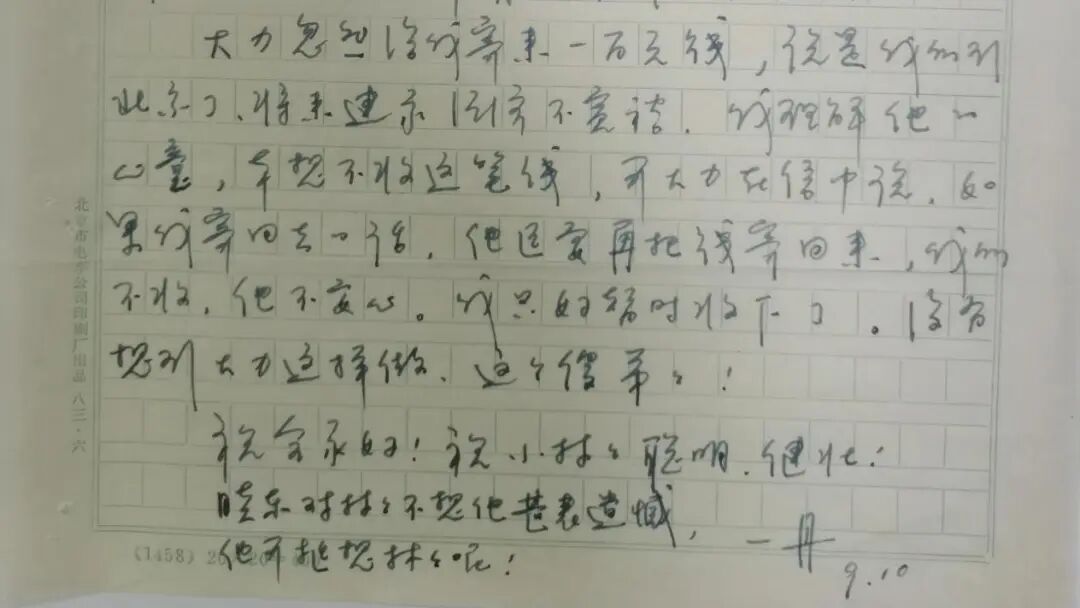 大力忽然给我寄来一百元钱，说是我们到
北京了，将来建家经济不宽裕。我理解他的
心意，本想不收这笔钱，可大力在信中说，如
果我寄回去的话，他还要再把钱寄回来，我们
不收，他不安心。我只好暂时收下了。没有
想到大力这样做，这个傻弟弟！
祝全家好！祝小林林聪明、健壮！
晓东对林林不想他爸表遗憾，
他可挺想林林呢！
一丹
9.10
北京市电车公司印刷厂出品 八三·六
(1458)